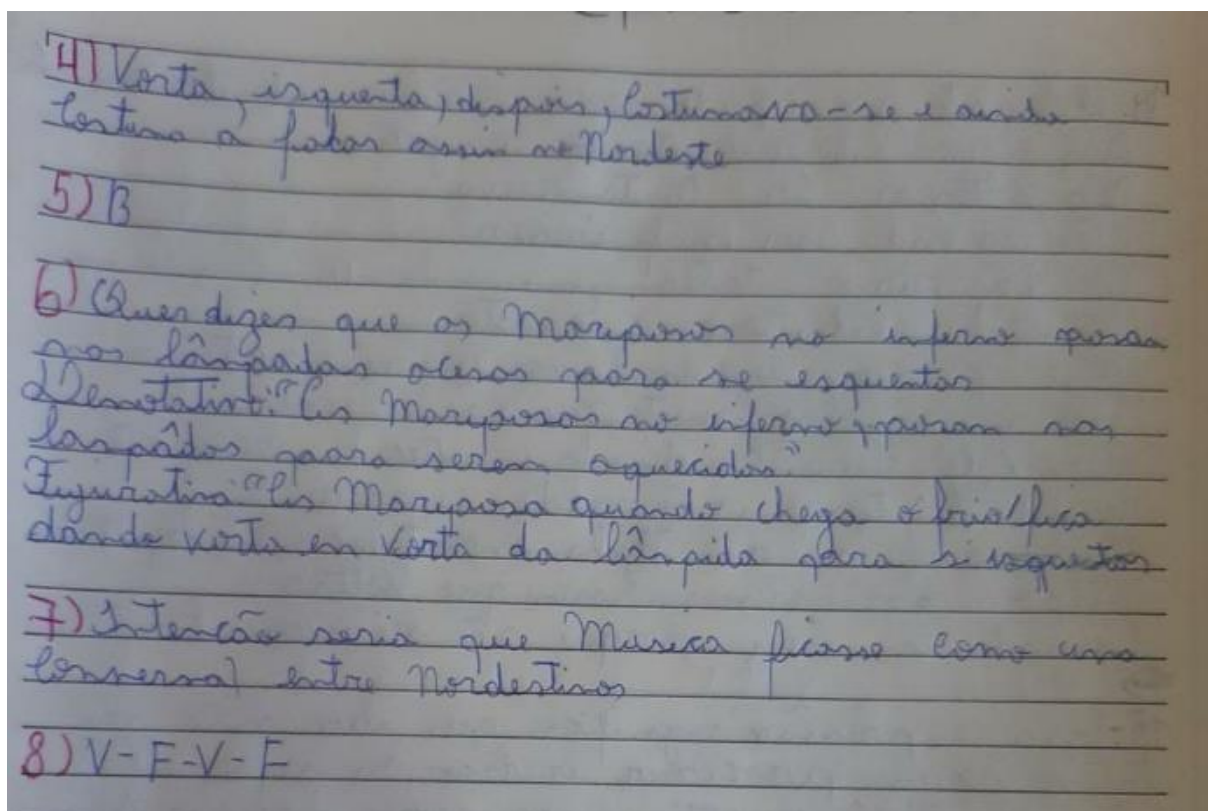 4) Vorta, isquenta, dispois, Costumava-se e ainda
Costuma a falar assim no Nordeste
5) B
6) Quer dizer que as Mariposas no inferno
nas lâmpadas acesas para se esquentar
Denotativo: "As Mariposas no inferno, nas
lampâdas para serem aquecidas"
Figurativa "As Mariposa quando chega o frio/fica
dando vorta em vorta da lâmpida para si isquentar
7) Intenção seria que Musica ficasse como uma
Conversa entre Nordestinos
8) V - F - V - F